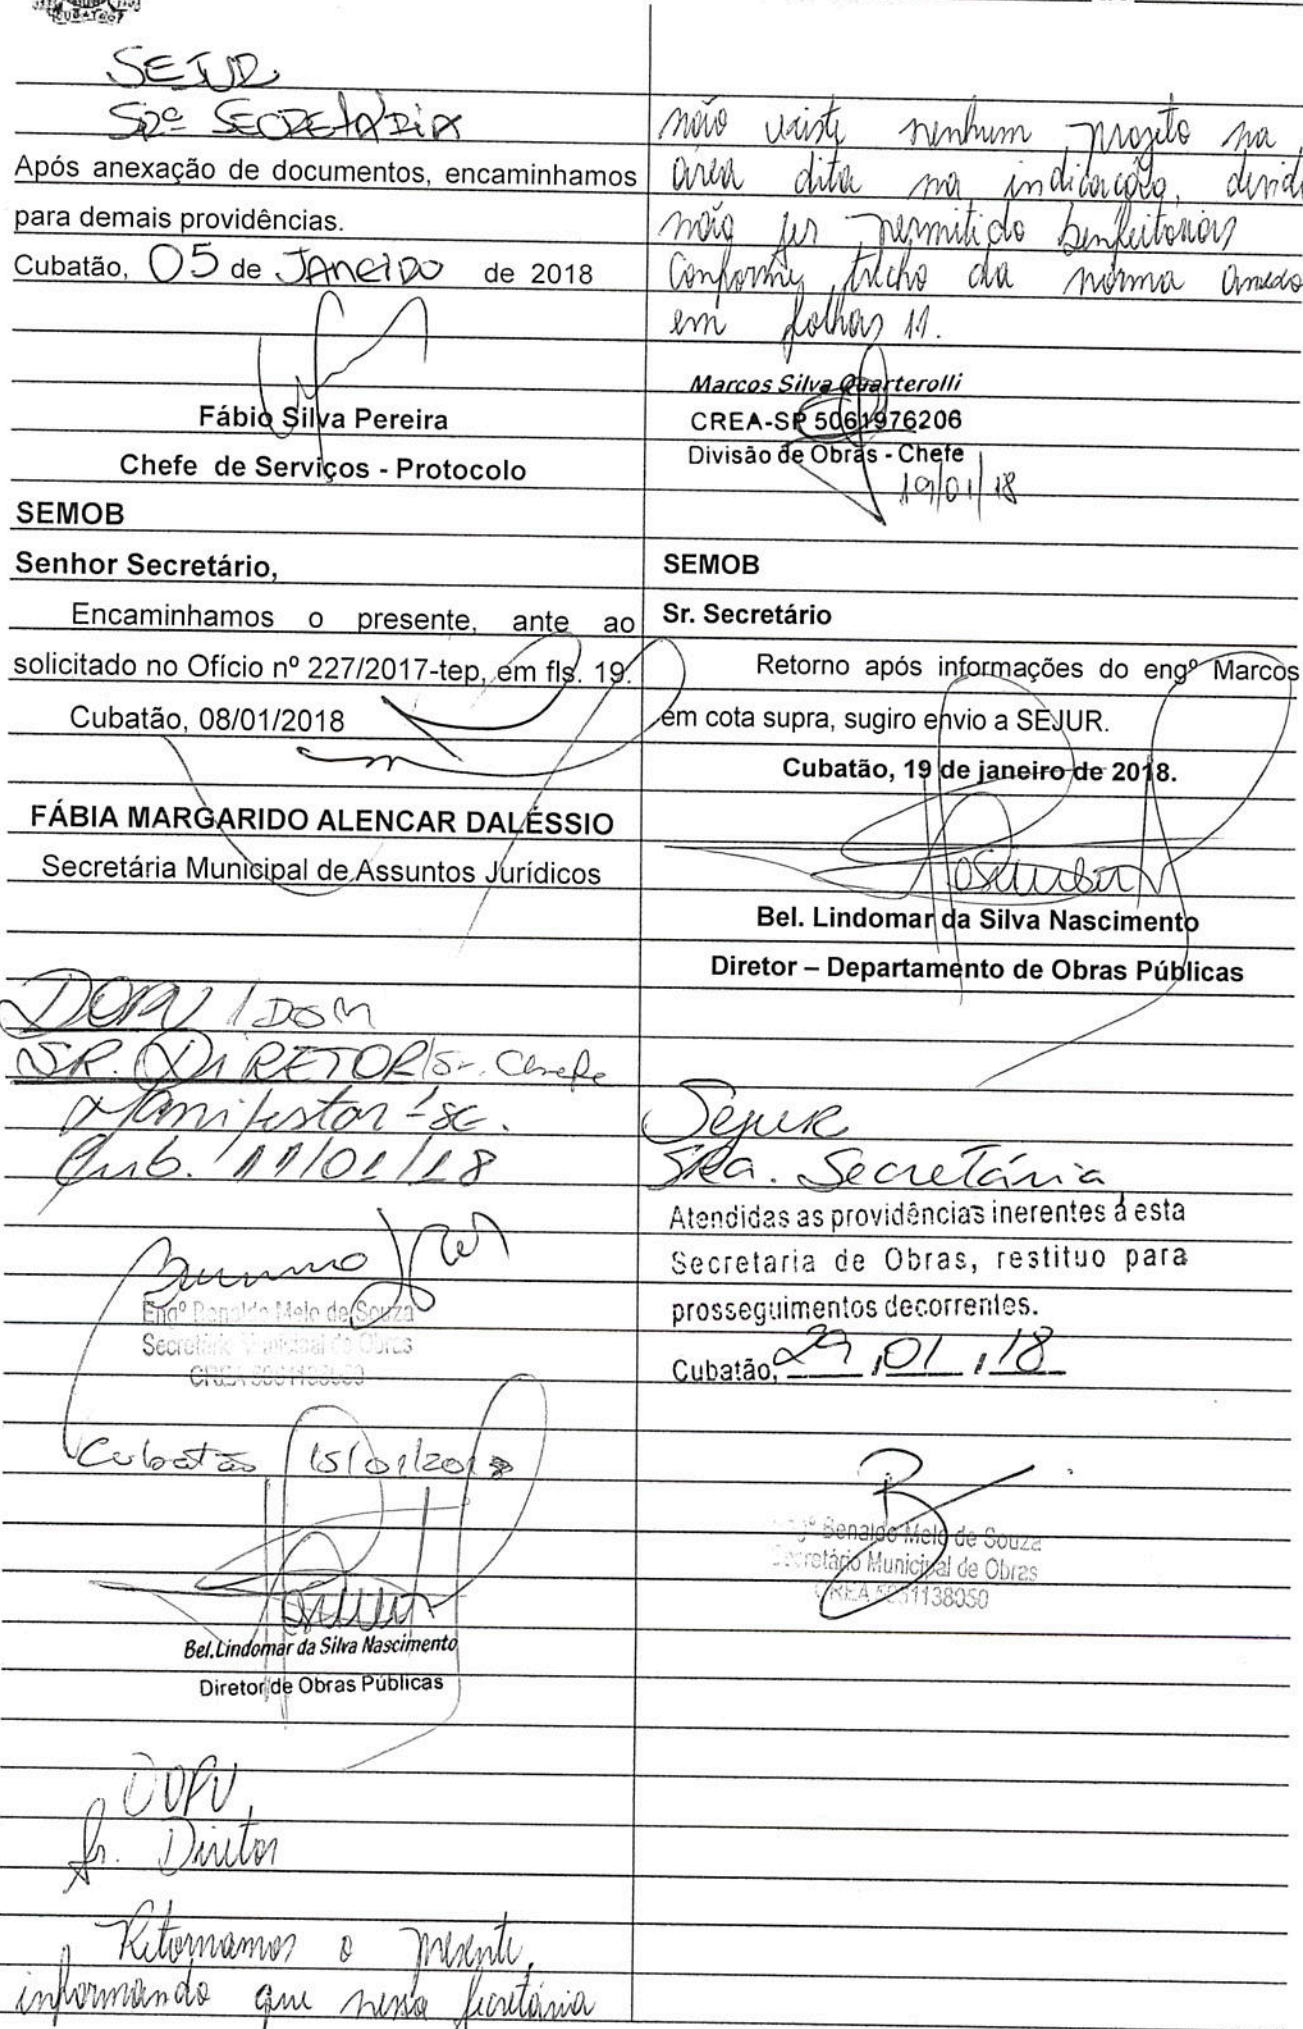 CUBATÃO
SEJUR
Srª SECRETÁRIA
Após anexação de documentos, encaminhamos
para demais providências.
Cubatão, 05 de JANEIRO de 2018
Fábio Silva Pereira
Chefe de Serviços - Protocolo
SEMOB
Senhor Secretário,
Encaminhamos o presente, ante ao
solicitado no Ofício nº 227/2017-tep, em fls. 19.
Cubatão, 08/01/2018
FÁBIA MARGARIDO ALENCAR DALÉSSIO
Secretária Municipal de Assuntos Jurídicos
DOPU / DOM
SR. DIRETOR/Sr. Chefe
Manifestar-se.
Cub. 11/01/18
Engº Benaldo Melo de Souza
Secretário Municipal de Obras
CREA 5061138050
Cubatão 15/01/2018
Bel. Lindomar da Silva Nascimento
Diretor de Obras Públicas
DOPU
Sr. Diretor
Retornamos o presente,
informando que nessa secretária
não existe nenhum projeto na
área dita na indicação, devido
não ser permitido benfeitorias
Conforme trecho da norma anexo
em folhas 11.
Marcos Silva Quarterolli
CREA-SP 5061976206
Divisão de Obras - Chefe
19/01/18
SEMOB
Sr. Secretário
Retorno após informações do engº Marcos
em cota supra, sugiro envio a SEJUR.
Cubatão, 19 de janeiro de 2018.
Bel. Lindomar da Silva Nascimento
Diretor – Departamento de Obras Públicas
Sejur
SRa. Secretária
Atendidas as providências inerentes à esta
Secretaria de Obras, restituo para
prosseguimentos decorrentes.
Cubatão, 29 / 01 / 18
Engº Benaldo Melo de Souza
Secretário Municipal de Obras
CREA 5061138050